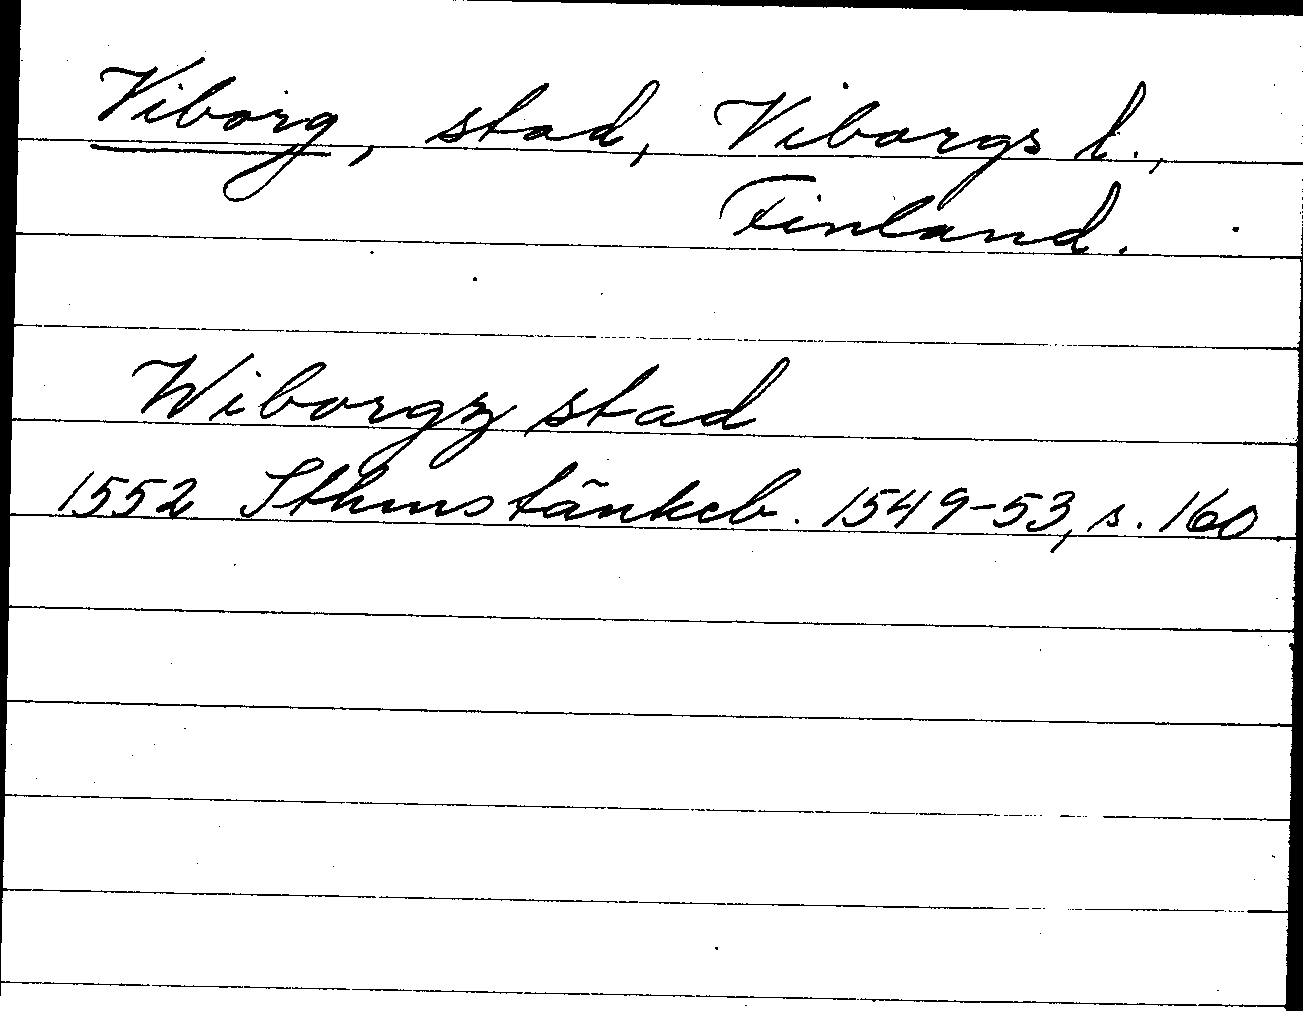 Viborg, stad, Viborgs l.,
Finland.
Wiborgz stad
1552 Sthms tänkeb. 1549-53, s. 160.